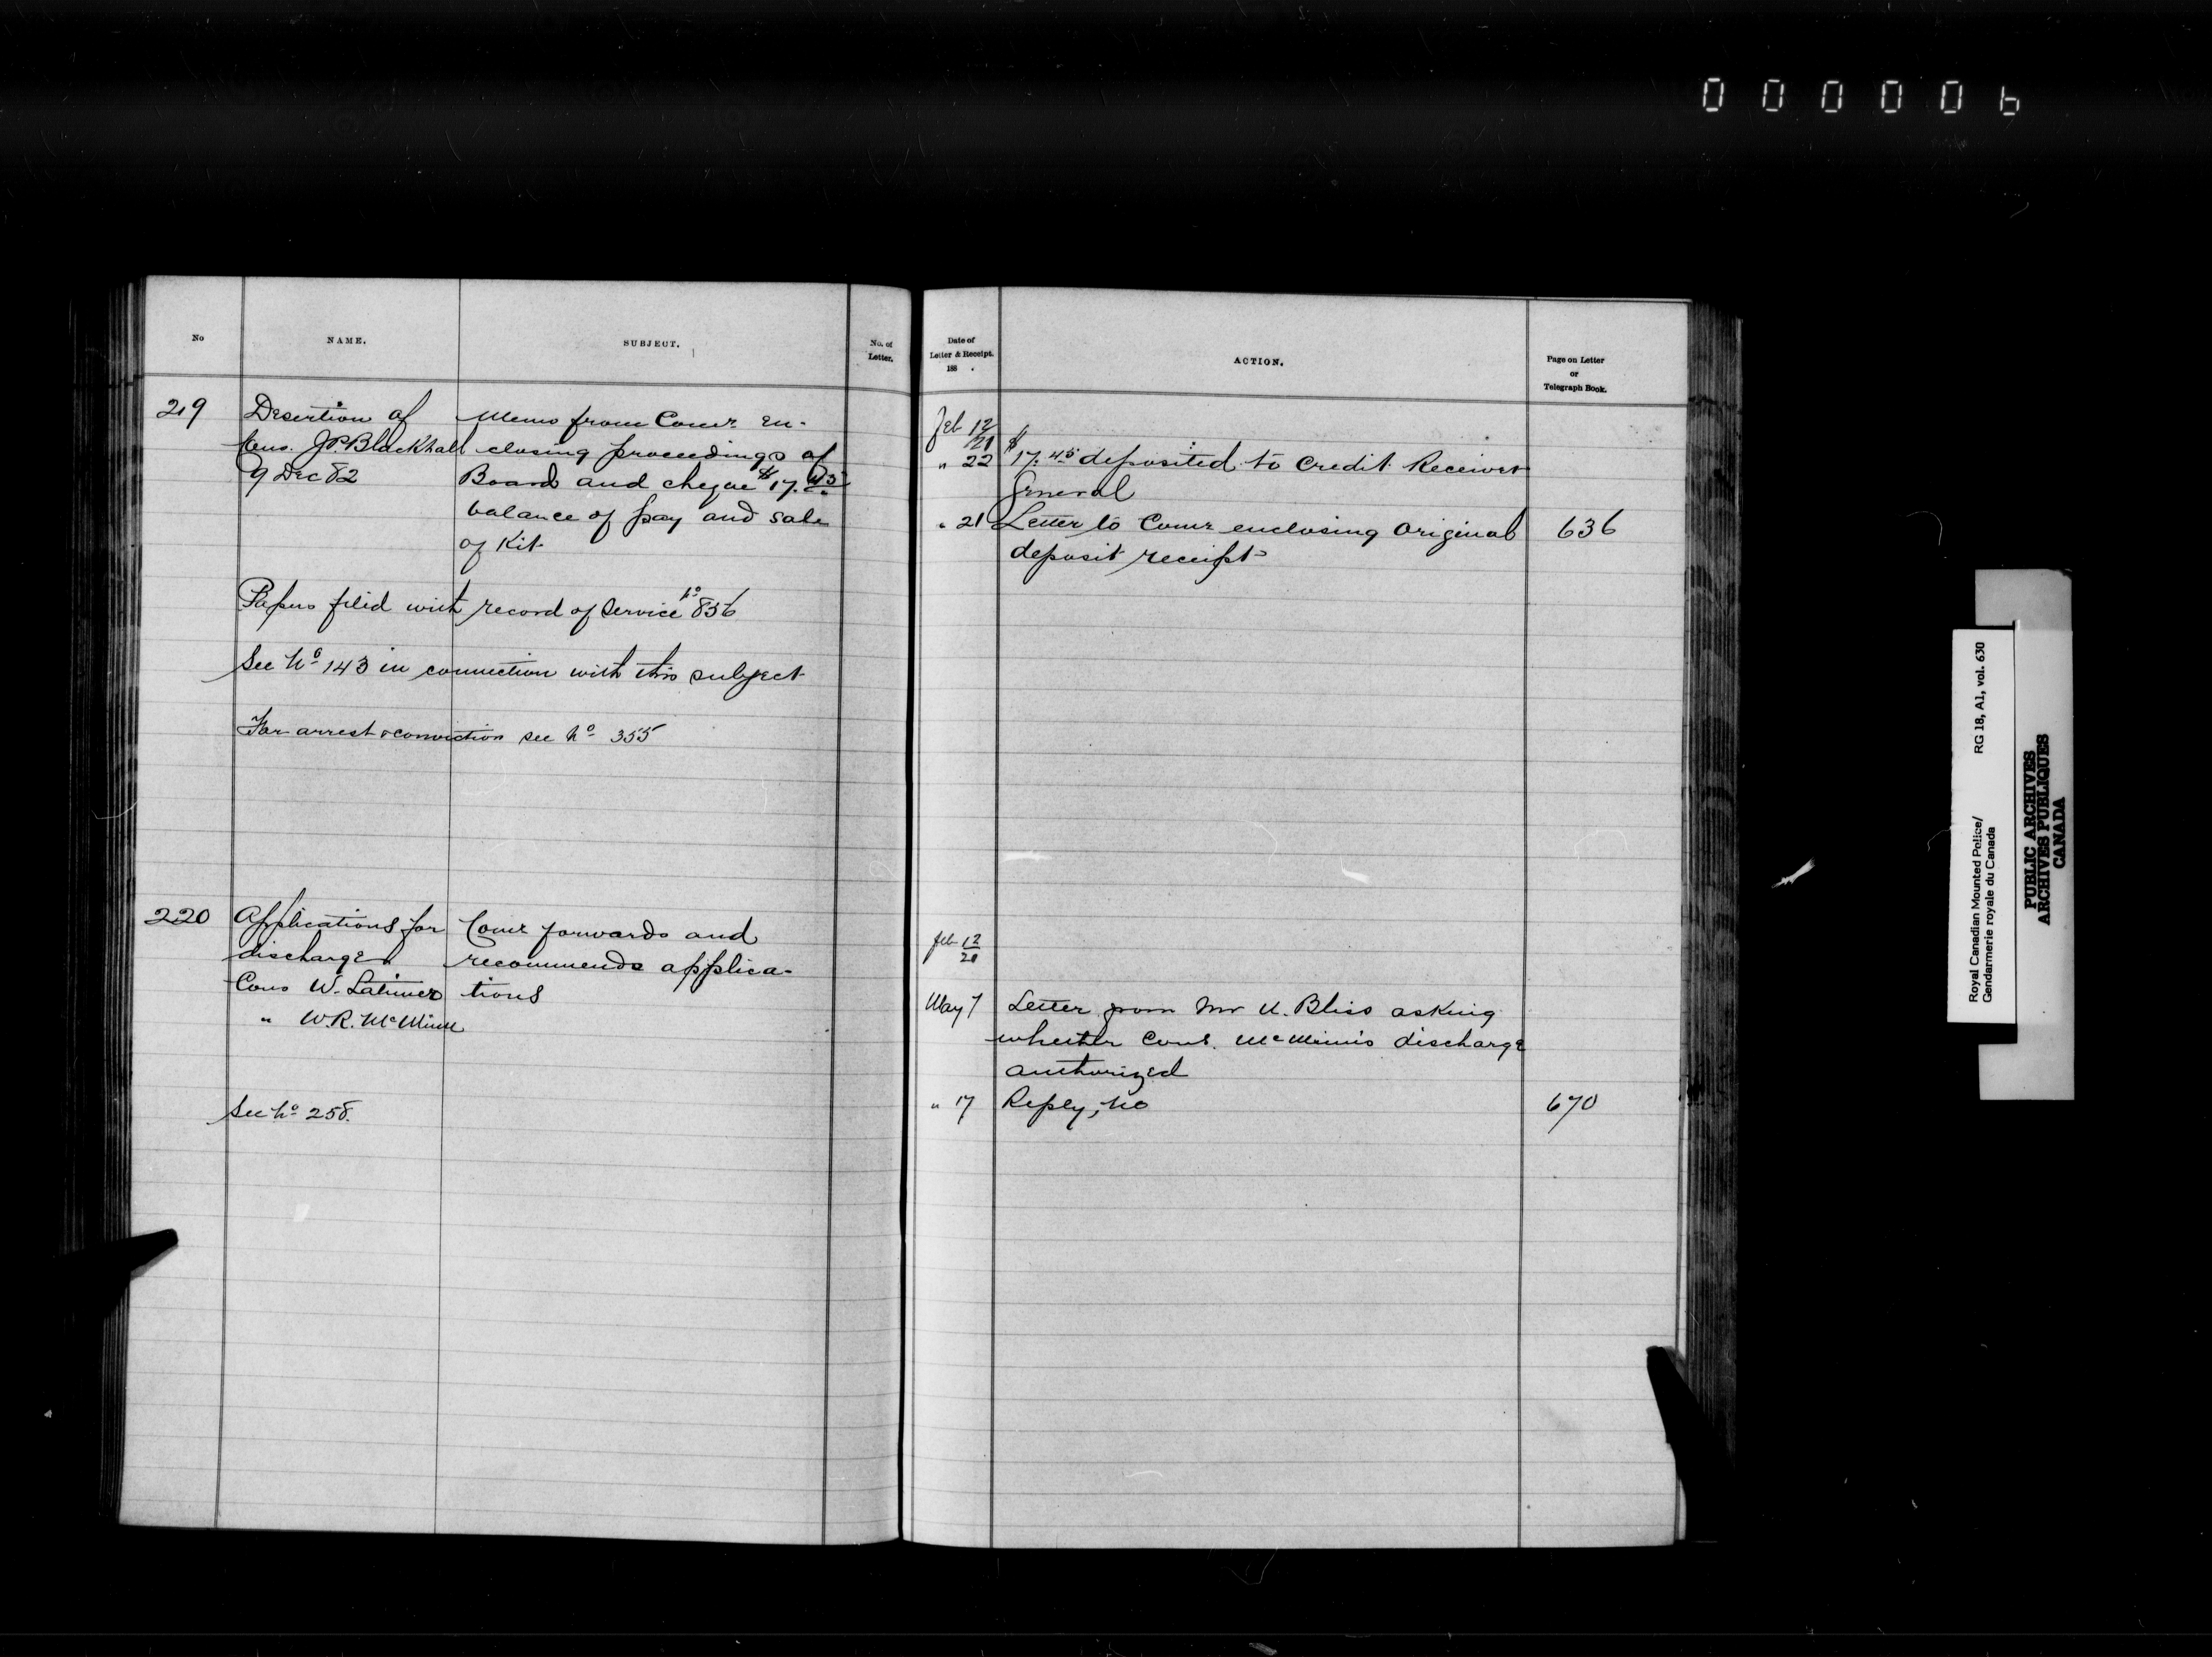 000006
No
NAME.
SUBJECT.
No. of
Letter.
Date of
Letter & Receipt.
188 .
ACTION.
Page on Letter
or
Telegraph Book.
219
Desertion of
Cons. J.P. Blackhall
9 Dec 82
Memo from Comr. en-
closing proceedings of
Board and cheque $17.45
balance of pay and sale
of Kit
Papers filed with record of service No 836
See No 143 in connection with this subject
For arrest & conviction see No 355
Feb 12/21
" 22
$17.45 deposited to credit Receiver
General
" 21
Letter to Comr enclosing original
deposit receipt
636
220
Applications for
discharge
Cons W. Latimer
" W.R. McMinn
Comr forwards and
recommends applica-
tions
See No 258.
Feb 12/20
May 7
Letter from Mr H. Bliss asking
whether Cons. McMinn's discharge
authorized
" 17
Reply, no
670
Royal Canadian Mounted Police/
Gendarmerie royale du Canada
RG 18, A1, vol. 630
PUBLIC ARCHIVES
ARCHIVES PUBLIQUES
CANADA